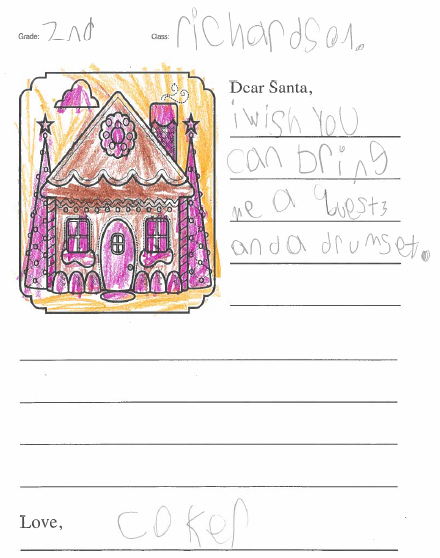 Grade: 2nd Class: richardson.
Dear Santa,
i wish you
can bring
me a quest3
and a drumset.
Love, coker